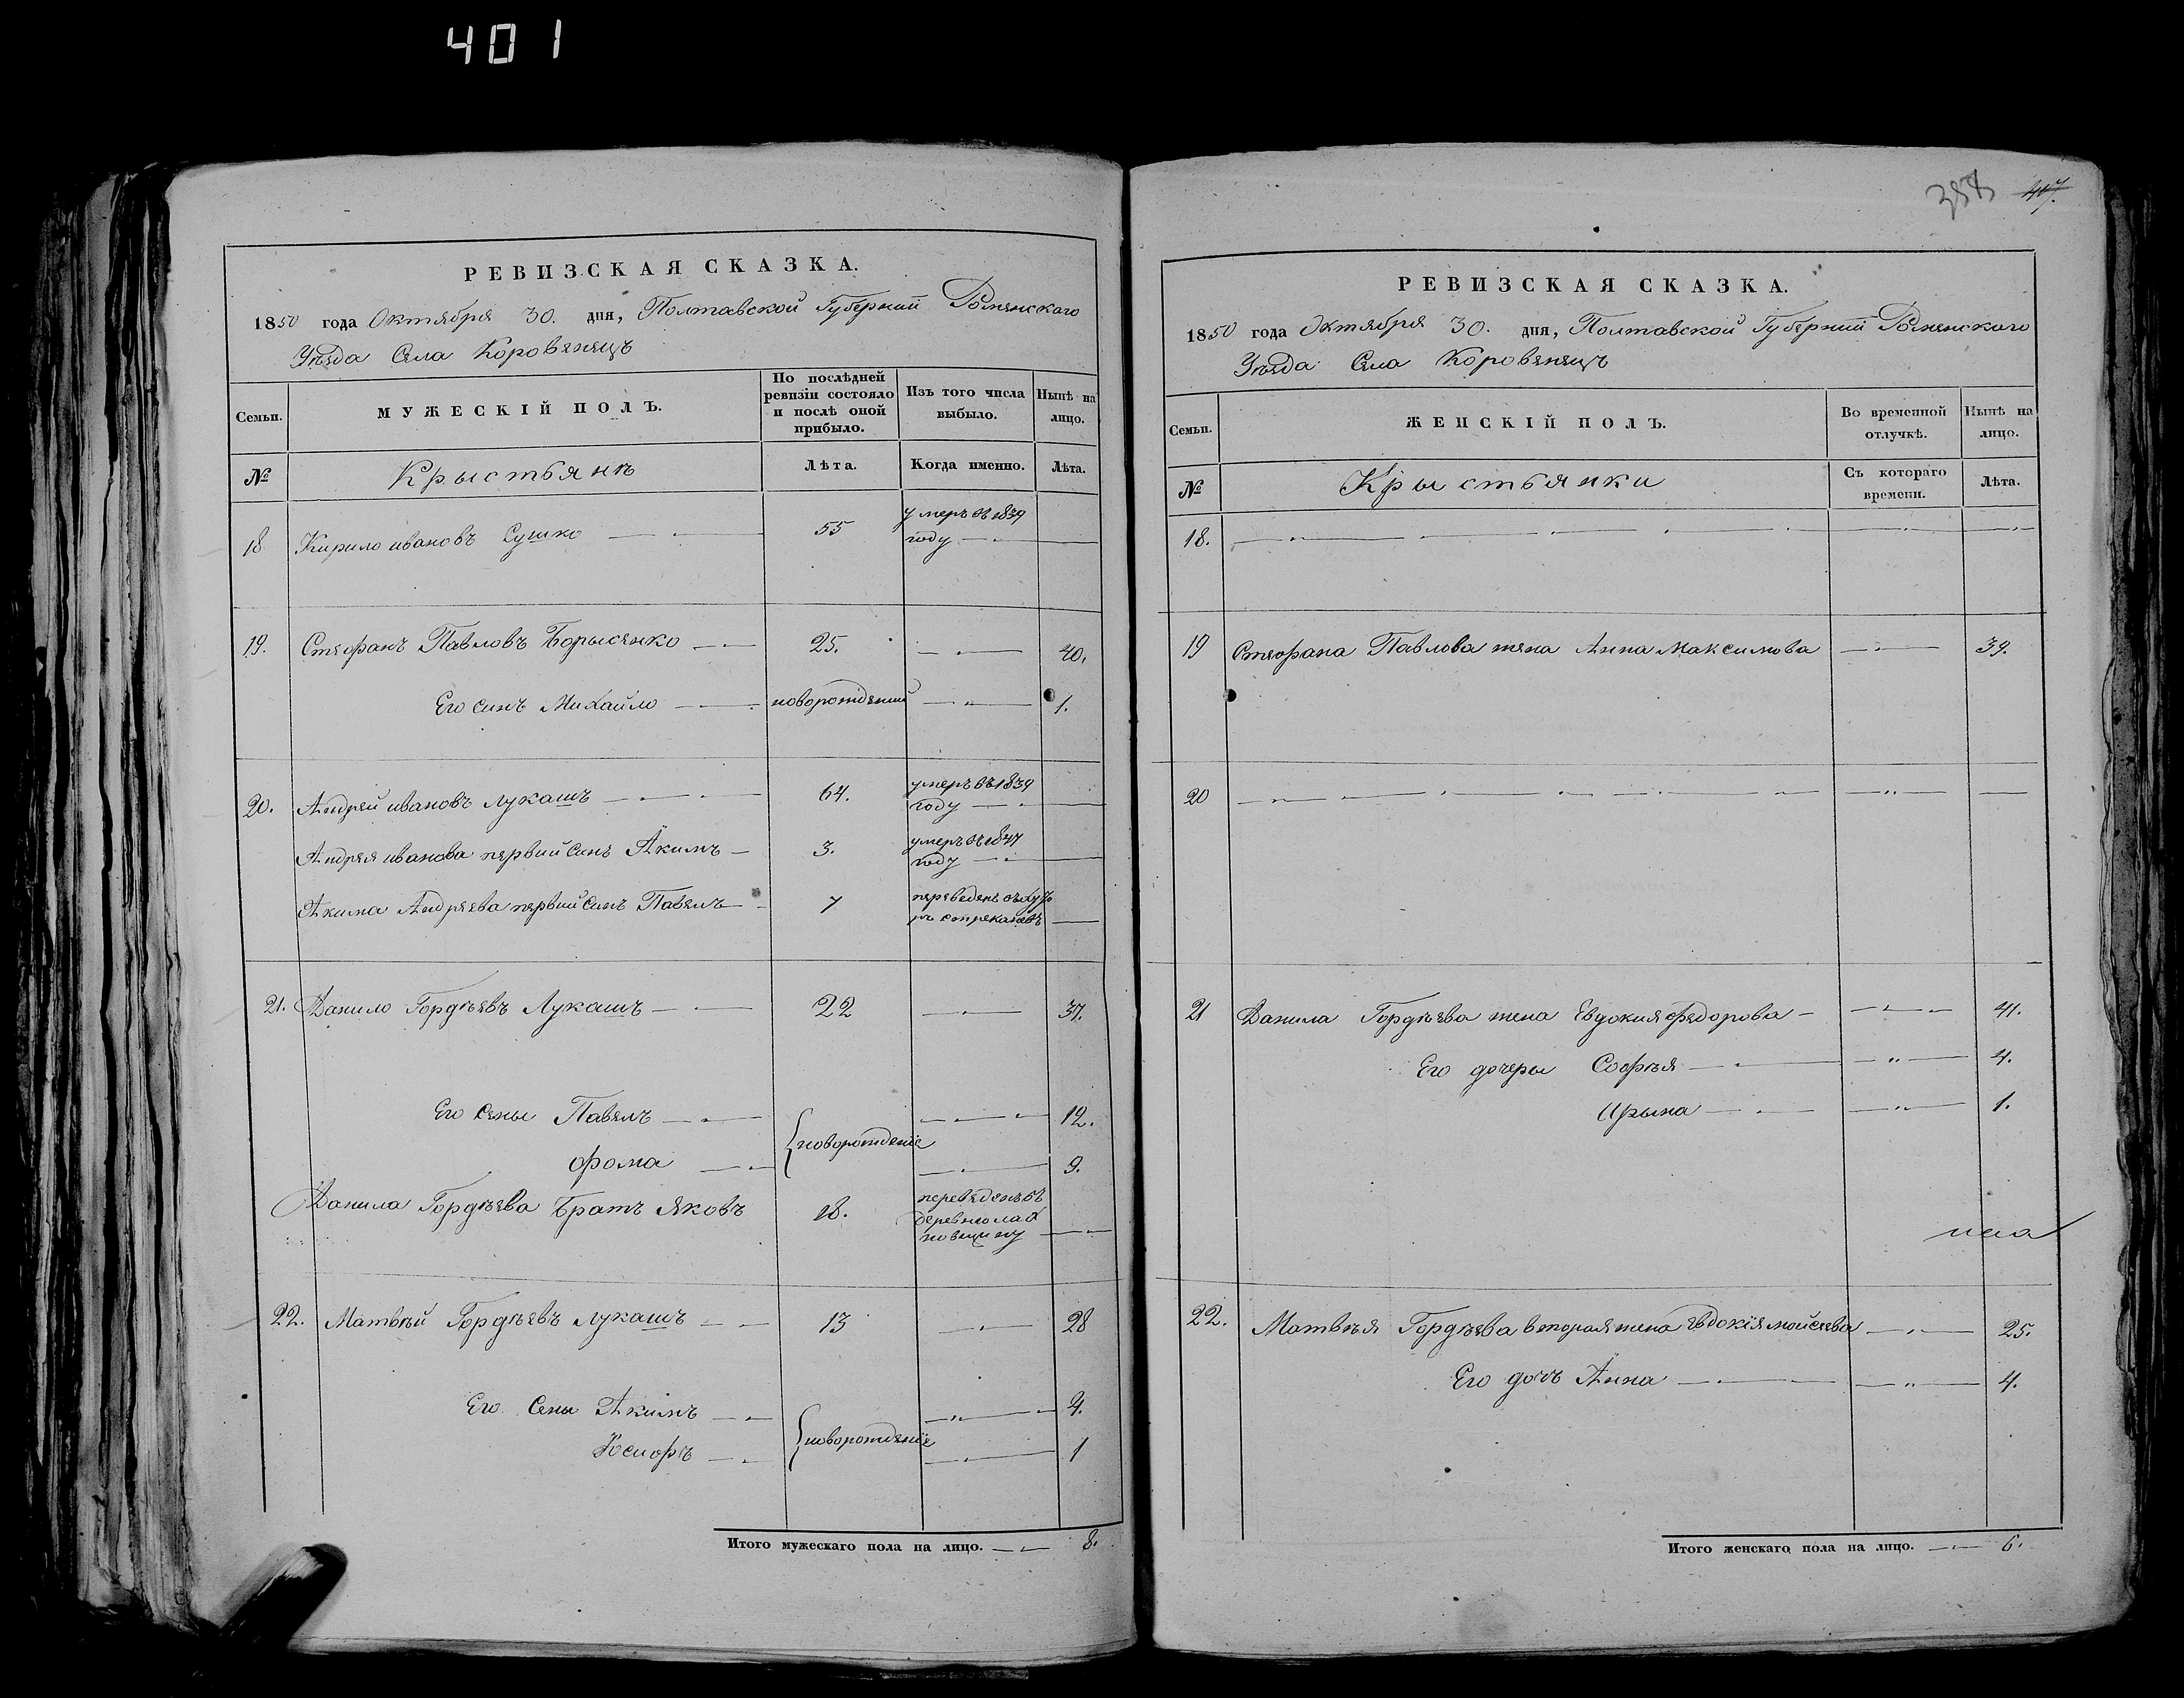 401
РЕВИЗСКАЯ СКАЗКА.
1850 года Октября 30. дня, Полтавской Губернии Роменского
Уѣзда Села Коровенецъ
Семьи.
МУЖЕСКІЙ ПОЛЪ.
По послѣдней ревизіи состояло и послѣ оной прибыло.
Изъ того числа выбыло.
Нынѣ на лицо.
№
Крыстьянъ
Лѣта.
Когда именно.
Лѣта.
18 Кирило ивановъ Сушко 55 умеръ въ 1839
году
19. Стефанъ Павловъ Борысенко 25. 40.
Его синъ Михайло новорождений 1.
20. Андрей ивановъ Лукашъ 64. умеръ въ 1839
году
Андрея иванова первий синъ Акимъ 3. умеръ въ 1847
году
Акима Андреева первий синъ Павелъ 7 переведенъ въ
21. Данило Гордѣевъ Лукашъ 22 37.
Его Сены Павелъ 12.
новорожденіе
Фома 9.
Данила Гордѣева Братъ Яковъ 18. переведенъ въ
деревню
22. Матвѣй Гордѣевъ Лукашъ 13 28
Его Сены Акимъ 4.
новорожденіе
Юсифъ 1
Итого мужескаго пола на лицо. 8.
358 417.
РЕВИЗСКАЯ СКАЗКА.
1850 года Октября 30. дня, Полтавской Губернии Роменского
Уѣзда Села Коровенецъ
Семьи.
ЖЕНСКІЙ ПОЛЪ.
Во временной отлучкѣ.
Нынѣ на лицо.
№
Крыстьянки
Съ котораго времени.
Лѣта.
18.
19 Стефана Павлова жена Анна Максимова 39.
20
21 Данила Гордѣева жена Евдокия Федорова 41.
Его дочеры Софѣя 4.
Ирына 1.
22. Матвѣя Гордѣева вторая жена Евдокія мойсеева 25.
Его дочъ Анна 4.
Итого женскаго пола на лицо. 6.